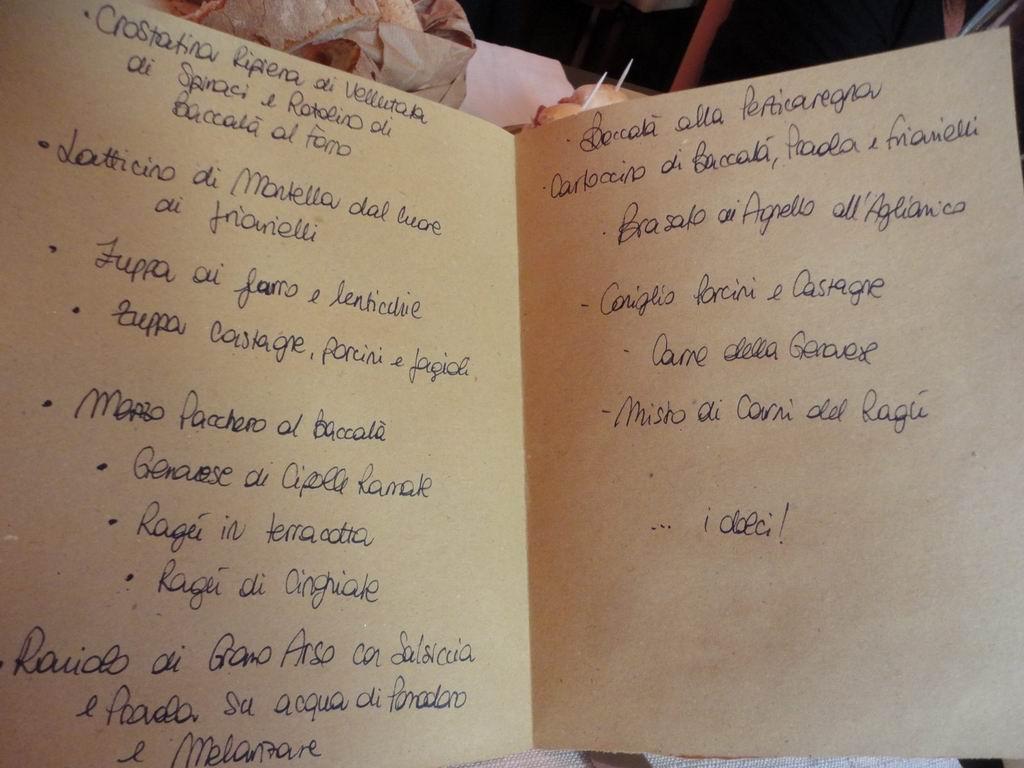 · Crostatina Ripiena di Vellutata
di Spinaci e Rotolino di
Baccalà al Forno
• Latticino di Montella dal cuore
di friarielli
• Zuppa di farro e lenticchie
• Zuppa castagne, porcini e fagioli
• Mezzo Pacchero al Baccalà
• Genovese di Cipolle Ramate
• Ragù in terracotta
• Ragù di Cinghiale
• Raviolo di Grano Arso con Salsiccia
e Provola su acqua di Pomodoro
e Melanzane
· Baccalà alla Perticaregna
· Cartoccino di Baccalà, Provola e friarielli
· Brasato di Agnello all'Aglianico
- Coniglio Porcini e Castagne
- Carne della Genovese
- Misto di Carni del Ragù
... i dolci!